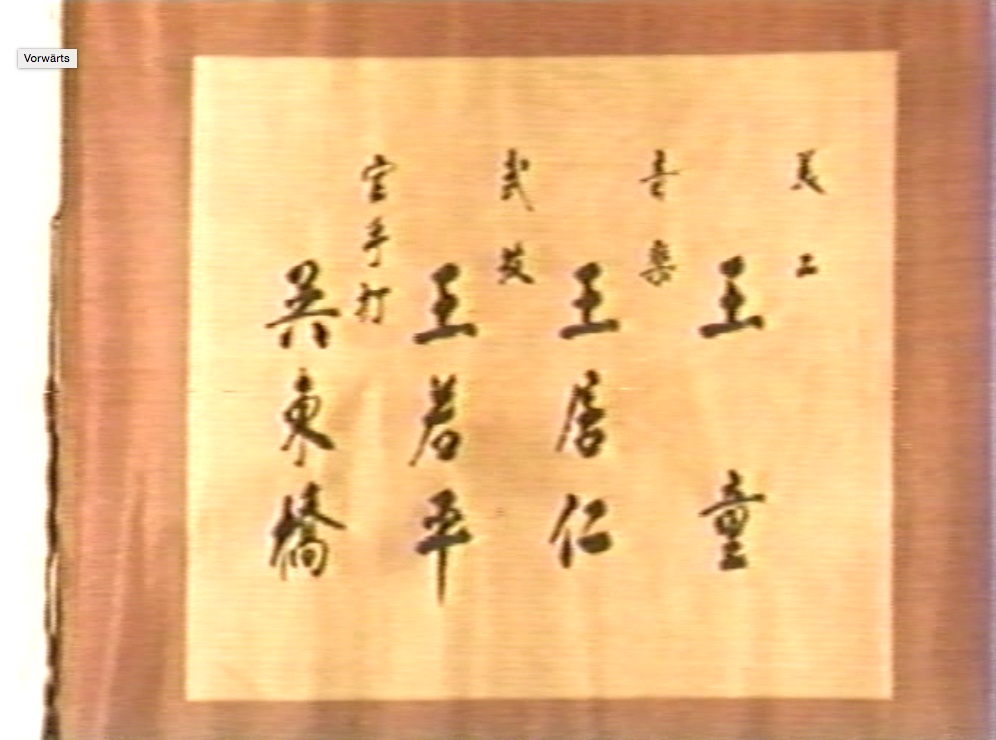 Vorwärts
美工
王童
音樂
王居仁
武技
王若平
空手打
吳東橋